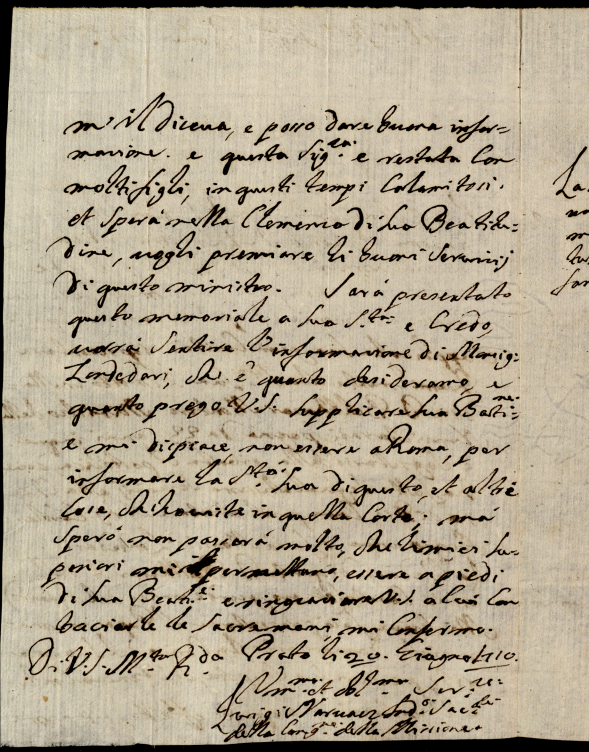 m' il diceua, e posso dare buona infor=
matione. e questa Sig.ra è restata con
molti figli, in questi tempi Calamitosi.
et Spera nella Clemenza di Sua Beatitu=
dine, uogli premiare li buoni Seruitij
di questo ministro. Sarà presentato
questo memoriale a Sua S.tà e Credo,
uorrà Sentire l'informatione di Monsig:
Zondedari, che è quanto desideramo, e
quanto prego V.S. Supplicare Sua Beati=ne
e mi dispiace, non essere a Roma, per
informare la S.tà Sua di questo, et altre
Cose, che ho uiste in quella Corte; mà
Spero non passarà molto, che li miei Su=
periori mi permettano, essere a piedi
di Sua Beat.e e ringratiare V.S. a cui Con
baciarle le Sacre mani, mi Confermo.
D. V.S. M.to R.da Prato li 20. Giugno 1710.
Um.mo et obl.mo Ser.re
Luigi Sac.te
della Cong.ne della Missione